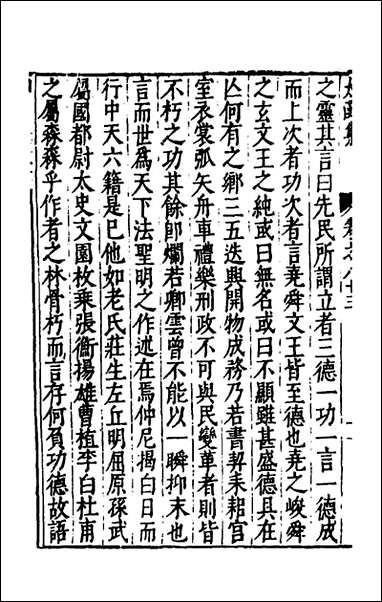 之靈其言曰先民所謂立者三德一功一言一德成
而上次者功次者言堯舜文王皆至德也堯之峻舜
之玄文王之純或曰無名或曰不顯雖甚盛德具在
亾何有之鄉三五迭興開物成務乃若書契耒耜宮
室衣裳弧矢舟車禮樂刑政不可與民變革者則皆
不朽之功其餘卽爛若卿雲曾不能以一瞬抑末也
言而世爲天下法聖明之作述在焉仲尼揭白日而
行中天六籍是已他如老氏莊生左丘明屈原孫武
屬國都尉太史文園枚乘張衡揚雄曹植李白杜甫
之屬森森乎作者之林骨朽而言存何負功德故語